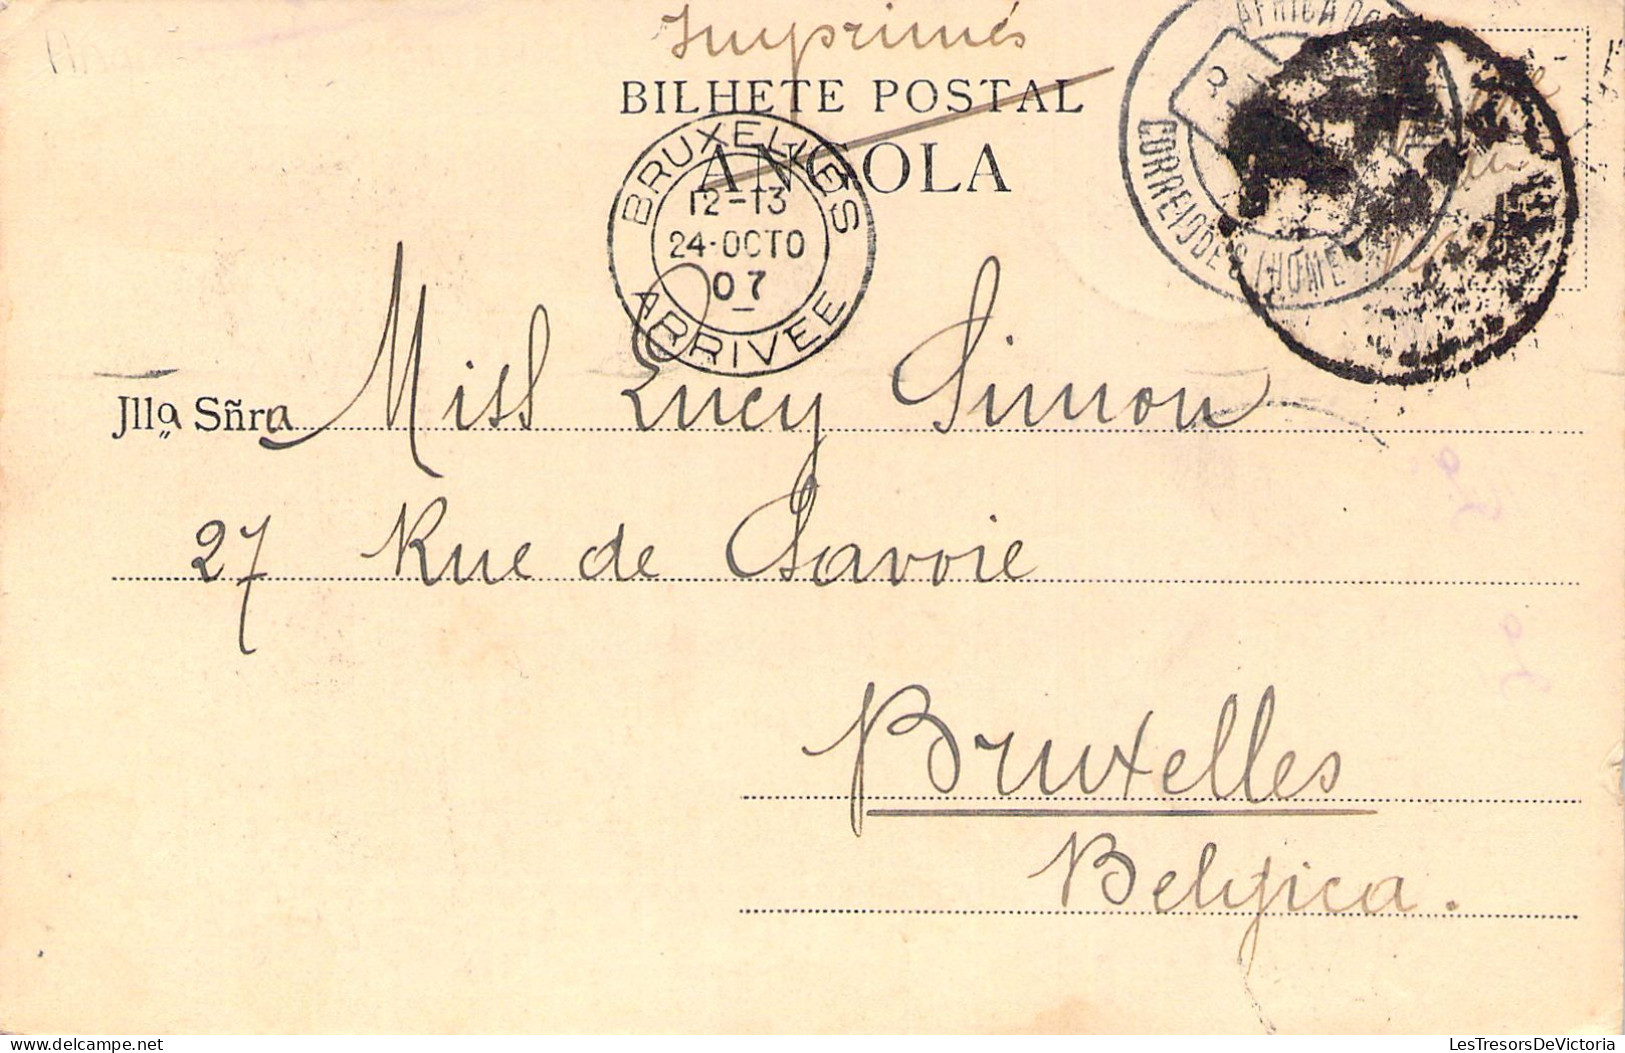 Imprimés
BILHETE POSTAL
ANGOLA
BRUXELLES
12-13
24·OCTO
07
ARRIVEE
CORREIO DE S. THOMÉ
Jllª Sñra Miss Lucy Simon
27 Rue de Savoie
Bruxelles
Belgica.
LesTresorsDeVictoria